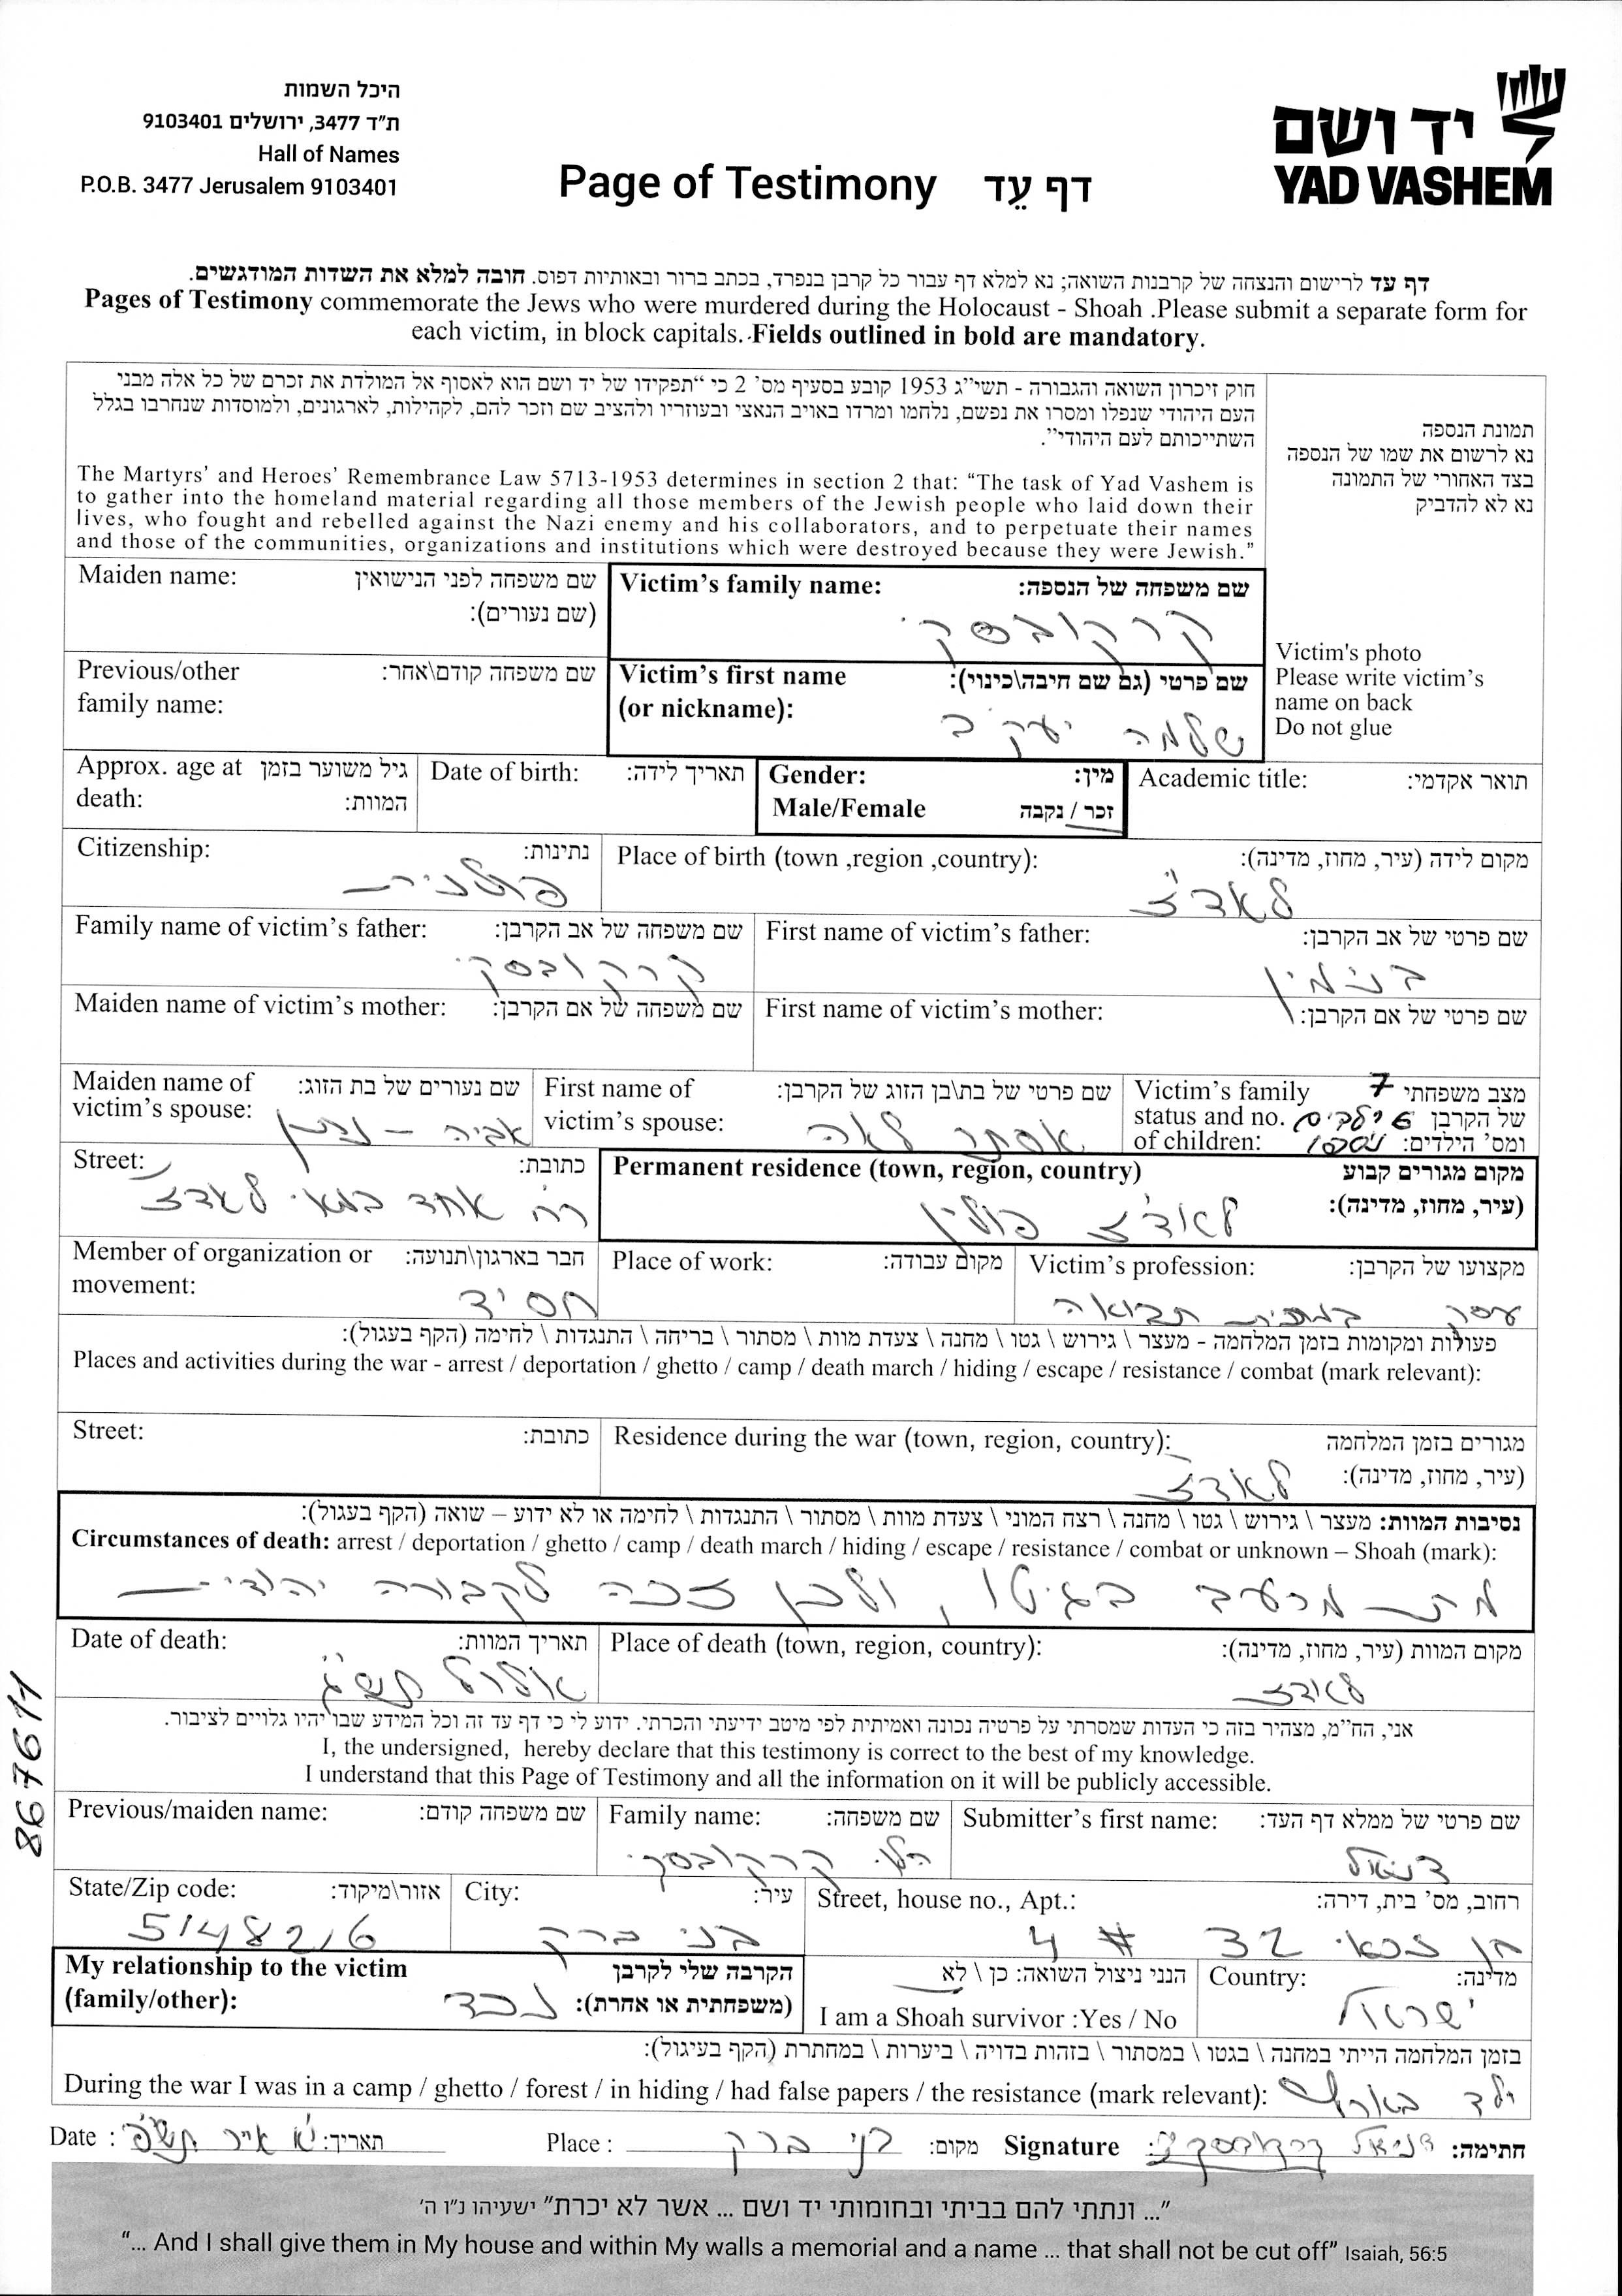 היכל השמות
ת"ד 3477, ירושלים 9103401
Hall of Names
P.O.B. 3477 Jerusalem 9103401
Page of Testimony דף עֵד
יד ושם
YAD VASHEM
דף עד לרישום והנצחה של קרבנות השואה; נא למלא דף עבור כל קרבן בנפרד, בכתב ברור ובאותיות דפוס. חובה למלא את השדות המודגשים.
Pages of Testimony commemorate the Jews who were murdered during the Holocaust - Shoah .Please submit a separate form for
each victim, in block capitals. Fields outlined in bold are mandatory.
חוק זיכרון השואה והגבורה - תשי"ג 1953 קובע בסעיף מס' 2 כי "תפקידו של יד ושם הוא לאסוף אל המולדת את זכרם של כל אלה מבני
העם היהודי שנפלו ומסרו את נפשם, נלחמו ומרדו באויב הנאצי ובעוזריו ולהציב שם וזכר להם, לקהילות, לארגונים, ולמוסדות שנחרבו בגלל
השתייכותם לעם היהודי".
The Martyrs' and Heroes' Remembrance Law 5713-1953 determines in section 2 that: "The task of Yad Vashem is
to gather into the homeland material regarding all those members of the Jewish people who laid down their
lives, who fought and rebelled against the Nazi enemy and his collaborators, and to perpetuate their names
and those of the communities, organizations and institutions which were destroyed because they were Jewish."
תמונת הנספה
נא לרשום את שמו של הנספה
בצד האחורי של התמונה
נא לא להדביק
Victim's photo
Please write victim's
name on back
Do not glue
Victim's family name: שם משפחה של הנספה:
קרקובסקי
Maiden name: שם משפחה לפני הנישואין
(שם נעורים):
Victim's first name שם פרטי (גם שם חיבה\כינוי):
(or nickname):
שלמה יעקב
Previous/other שם משפחה קודם\אחר:
family name:
Academic title: תואר אקדמי:
Gender: מין:
Male/Female זכר / נקבה
Date of birth: תאריך לידה:
Approx. age at גיל משוער בזמן
death: המוות:
Place of birth (town ,region ,country): מקום לידה (עיר, מחוז, מדינה):
לאדז
Citizenship: נתינות:
פולנית
First name of victim's father: שם פרטי של אב הקרבן:
בנימין
Family name of victim's father: שם משפחה של אב הקרבן:
קרקובסקי
First name of victim's mother: שם פרטי של אם הקרבן:
Maiden name of victim's mother: שם משפחה של אם הקרבן:
Victim's family מצב משפחתי 7
status and no. של הקרבן ילדים
of children: ומס' הילדים: ניספו
First name of שם פרטי של בת\בן הזוג של הקרבן:
victim's spouse: אסתר לאה
Maiden name of שם נעורים של בת הזוג:
victim's spouse:
Permanent residence (town, region, country) מקום מגורים קבוע
(עיר, מחוז, מדינה):
לאדז פולין
Street: כתובת:
רח אחד לאדז
Victim's profession: מקצועו של הקרבן:
עסק תבואה
Place of work: מקום עבודה:
Member of organization or חבר בארגון\תנועה:
movement:
חסיד
פעולות ומקומות בזמן המלחמה - מעצר \ גירוש \ גטו \ מחנה \ צעדת מוות \ מסתור \ בריחה \ התנגדות \ לחימה (הקף בעגול):
Places and activities during the war - arrest / deportation / ghetto / camp / death march / hiding / escape / resistance / combat (mark relevant):
Residence during the war (town, region, country): מגורים בזמן המלחמה
(עיר, מחוז, מדינה):
לאדז
Street: כתובת:
נסיבות המוות: מעצר \ גירוש \ גטו \ מחנה \ רצח המוני \ צעדת מוות \ מסתור \ התנגדות \ לחימה או לא ידוע – שואה (הקף בעגול):
Circumstances of death: arrest / deportation / ghetto / camp / death march / hiding / escape / resistance / combat or unknown – Shoah (mark):
מת מרעב בגיטו, ולכן זכה לקבורה יהודית
Place of death (town, region, country): מקום המוות (עיר, מחוז, מדינה):
לאדז
Date of death: תאריך המוות:
אלול תש"ג
אני, הח"מ, מצהיר בזה כי העדות שמסרתי על פרטיה נכונה ואמיתית לפי מיטב ידיעתי והכרתי. ידוע לי כי דף עד זה וכל המידע שבו יהיו גלויים לציבור.
I, the undersigned, hereby declare that this testimony is correct to the best of my knowledge.
I understand that this Page of Testimony and all the information on it will be publicly accessible.
Submitter's first name: שם פרטי של ממלא דף העד:
דניאל
Family name: שם משפחה:
הלוי קרקובסקי
Previous/maiden name: שם משפחה קודם:
Street, house no., Apt.: רחוב, מס' בית, דירה:
בן זכאי 32 # 4
City: עיר:
בני ברק
State/Zip code: אזור\מיקוד:
5148216
Country: מדינה:
ישראל
הנני ניצול השואה: כן \ לא
I am a Shoah survivor :Yes / No
My relationship to the victim הקרבה שלי לקרבן
(family/other): (משפחתית או אחרת):
נכד
בזמן המלחמה הייתי במחנה \ בגטו \ במסתור \ בזהות בדויה \ ביערות \ במחתרת (הקף בעיגול):
During the war I was in a camp / ghetto / forest / in hiding / had false papers / the resistance (mark relevant): ילד בארץ
Date : תאריך: י"א אייר Place : מקום: בני ברק Signature חתימה: דניאל קרקובסקי
"... ונתתי להם בביתי ובחומותי יד ושם ... אשר לא יכרת" ישעיהו נ"ו ה'
"... And I shall give them in My house and within My walls a memorial and a name ... that shall not be cut off" Isaiah, 56:5
867611